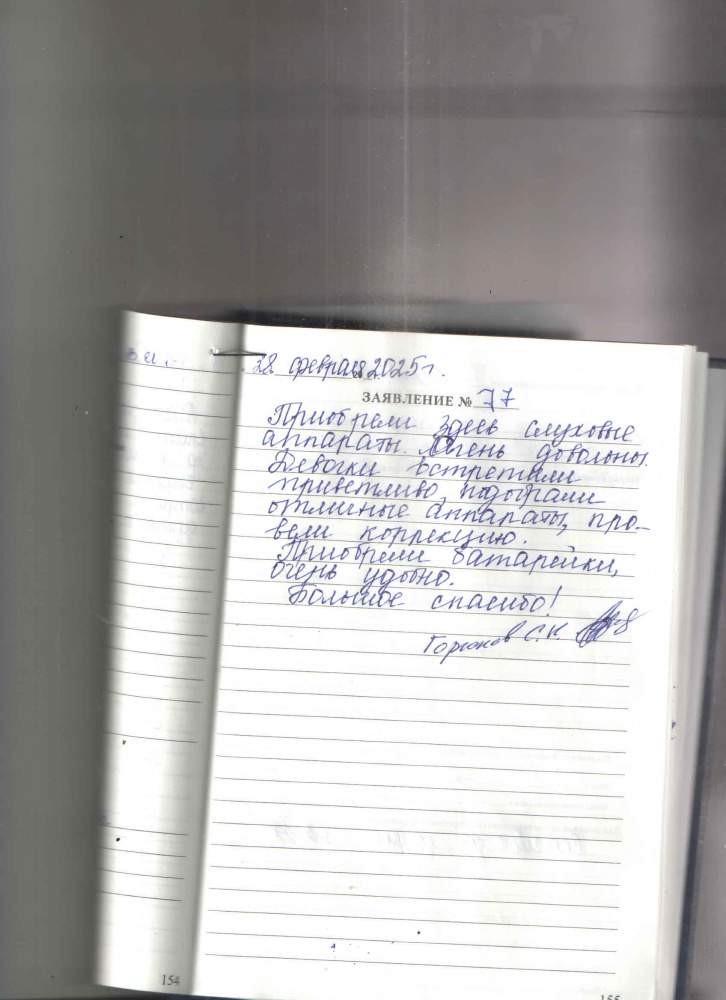 28 февраля 2025 г.
ЗАЯВЛЕНИЕ № 77
Приобрели здесь слуховые
аппараты. Очень довольны.
Девочки встретили
приветливо, подобрали
отличные аппараты, про-
вели коррекцию.
Приобрели батарейки,
очень удобно.
Большое спасибо!
С.К.
154
155